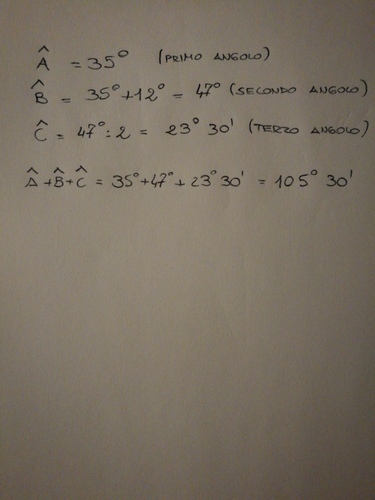 Â = 35° (PRIMO ANGOLO)
B̂ = 35°+12° = 47° (SECONDO ANGOLO)
Ĉ = 47° : 2 = 23° 30' (TERZO ANGOLO)
Â+B̂+Ĉ = 35°+47°+23° 30' = 105° 30'